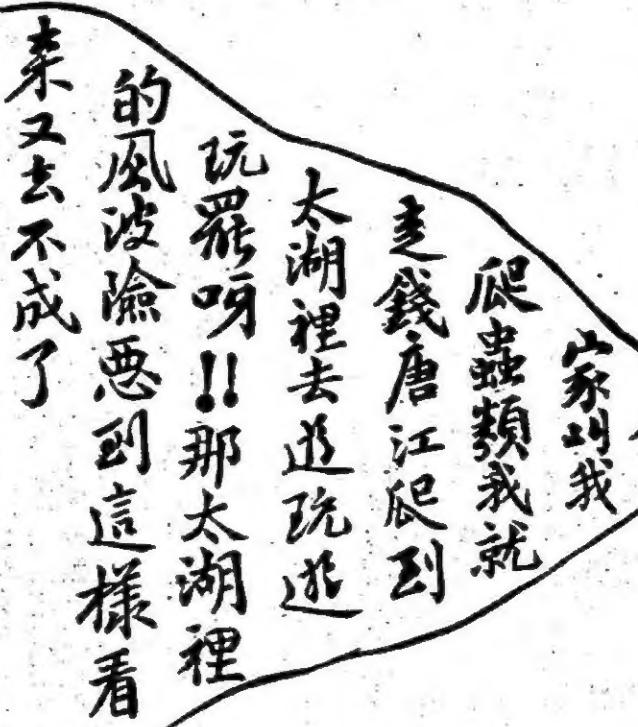 家叫我
爬蟲類我就
走錢唐江爬到
太湖裡去遊玩遊
玩罷呀!!那太湖裡
的風波險惡到這樣看
來又去不成了